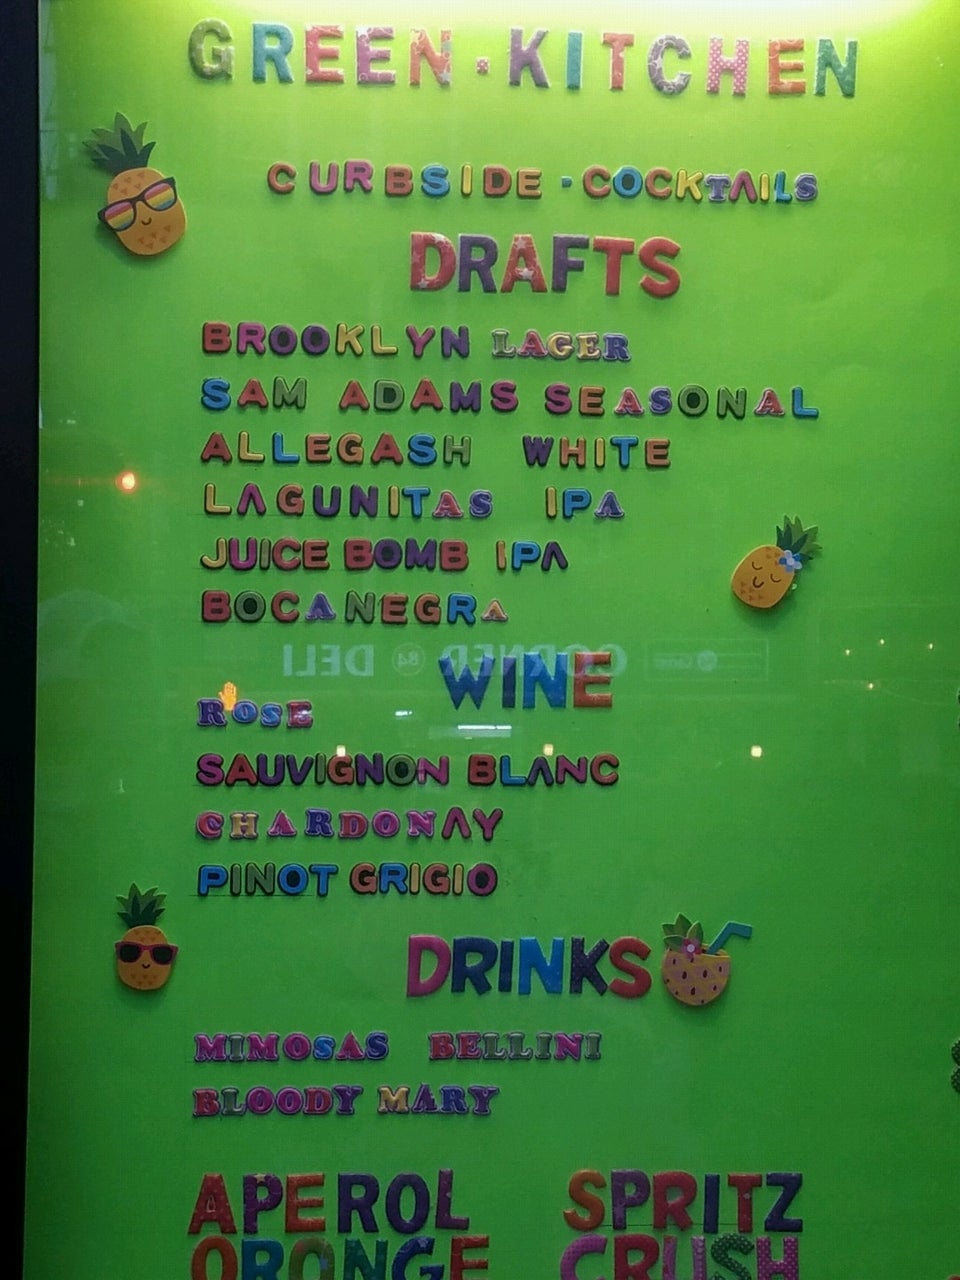 GREEN·KITCHEN
CURBSIDE·COCKTAILS
DRAFTS
BROOKLYN LAGER
SAM ADAMS SEASONAL
ALLEGASH WHITE
LAGUNITAS IPA
JUICE BOMB IPA
BOCANEGRA
CORNER 84 DELI
WINE
ROSE
SAUVIGNON BLANC
CHARDONAY
PINOT GRIGIO
DRINKS
MIMOSAS BELLINI
BLOODY MARY
APEROL SPRITZ
ORONGE CRUSH